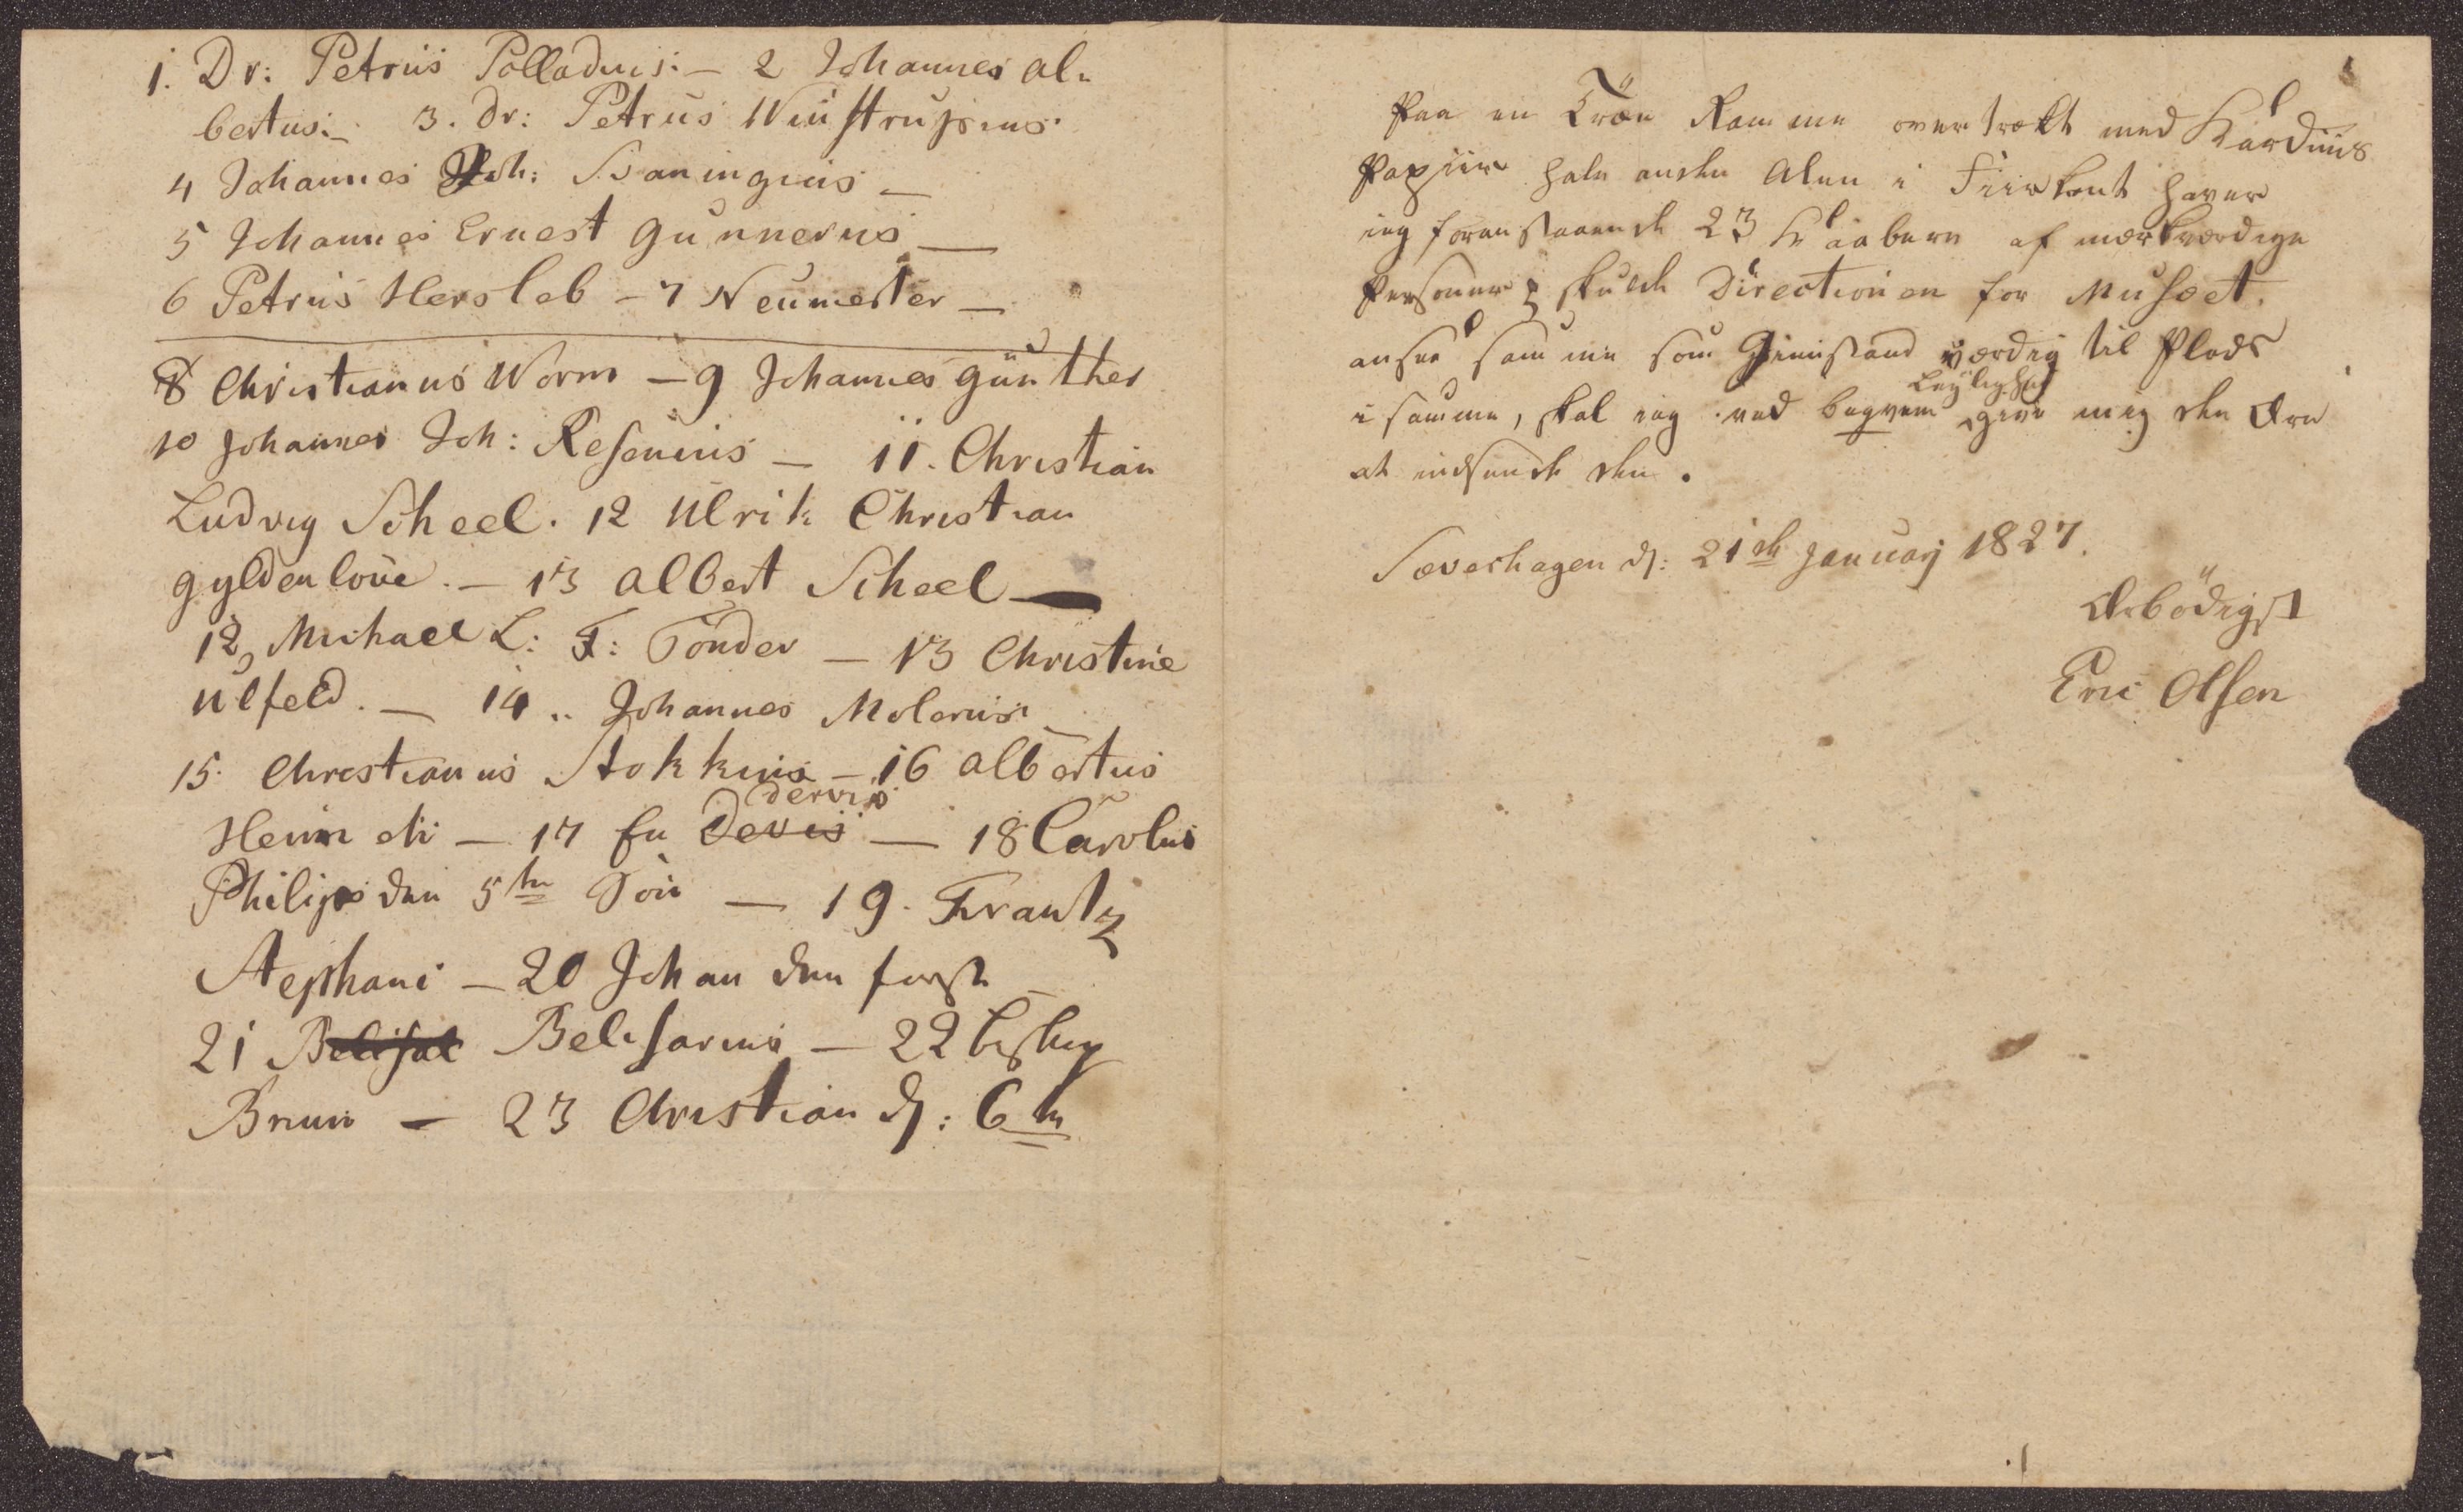 1. Dr: Petrus Palladius. – 2 Johannes Al-
bertus. – 3. Dr: Petrus Winstrupius
4 Johannes Joh: Svaningius –
5 Johannes Ernest Gunnerus –
6 Petrus Hersleb – 7 Neumester –
8 Christianus Worm – 9 Johannes Günther
10 Johannes Joh: Resenius – 11. Christian
Ludvig Scheel. 12 Ulrik Christian
gyldenløve. – 13 Albert Scheel –
12, Michael L: T: Tönder – 13 Christine
Ulfeld. – 14.. Johannes
15. Christianus Stokkius – 16 Albertus
dervis
– 17 En Devis – 18 Carolus
Philip den 5te Søn – 19. Frantz
Stephani – 20 Johan den første –
21 Belisal Belisarius – 22 Biskop
Brun – 23 Christian d: 6te
Paa en Træe Ramme overtrækt med Karduus
Papiir halv anden Alen i Fiirkant haver
ieg foranstaaende 23 Kaabere af mærkværdige
Personer; skulde Directionen for Musæet.
ansee samme som Gienstand værdig til Plads
Leylighed
i samme, skal ieg ved beqvem give mig den Ære
at indsende den.
Sæveshagen d: 21de Januarj 1827.
Ærbödigst
Eric Olsen